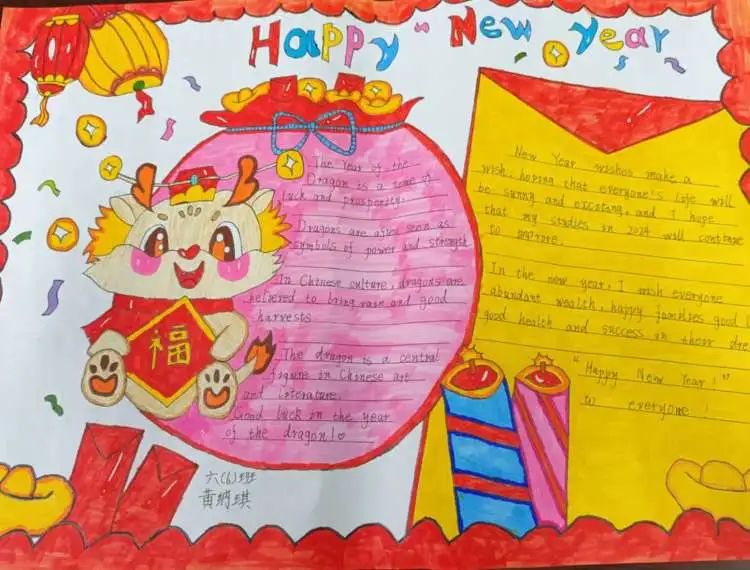 Happy New Year
The Year of the
Dragon is a time of
luck and prosperity.
Dragons are often seen as
symbols of power and strength
In Chinese culture, dragons are
belived to bring rain and good
harvests
The dragon is a central
figure in Chinese art
and literature.
Good luck in the year
of the dragon!
福
六(6)班
黄 琪
New Year wishes make a
wish, hoping that everyone's life will
be sunny and exciting, and I hope
that my studies in 2024 will continue
to improve.
In the new year, I wish everyone
abundant wealth, happy families good l
good health and success in their dre
"Happy New Year!"
to everyone!